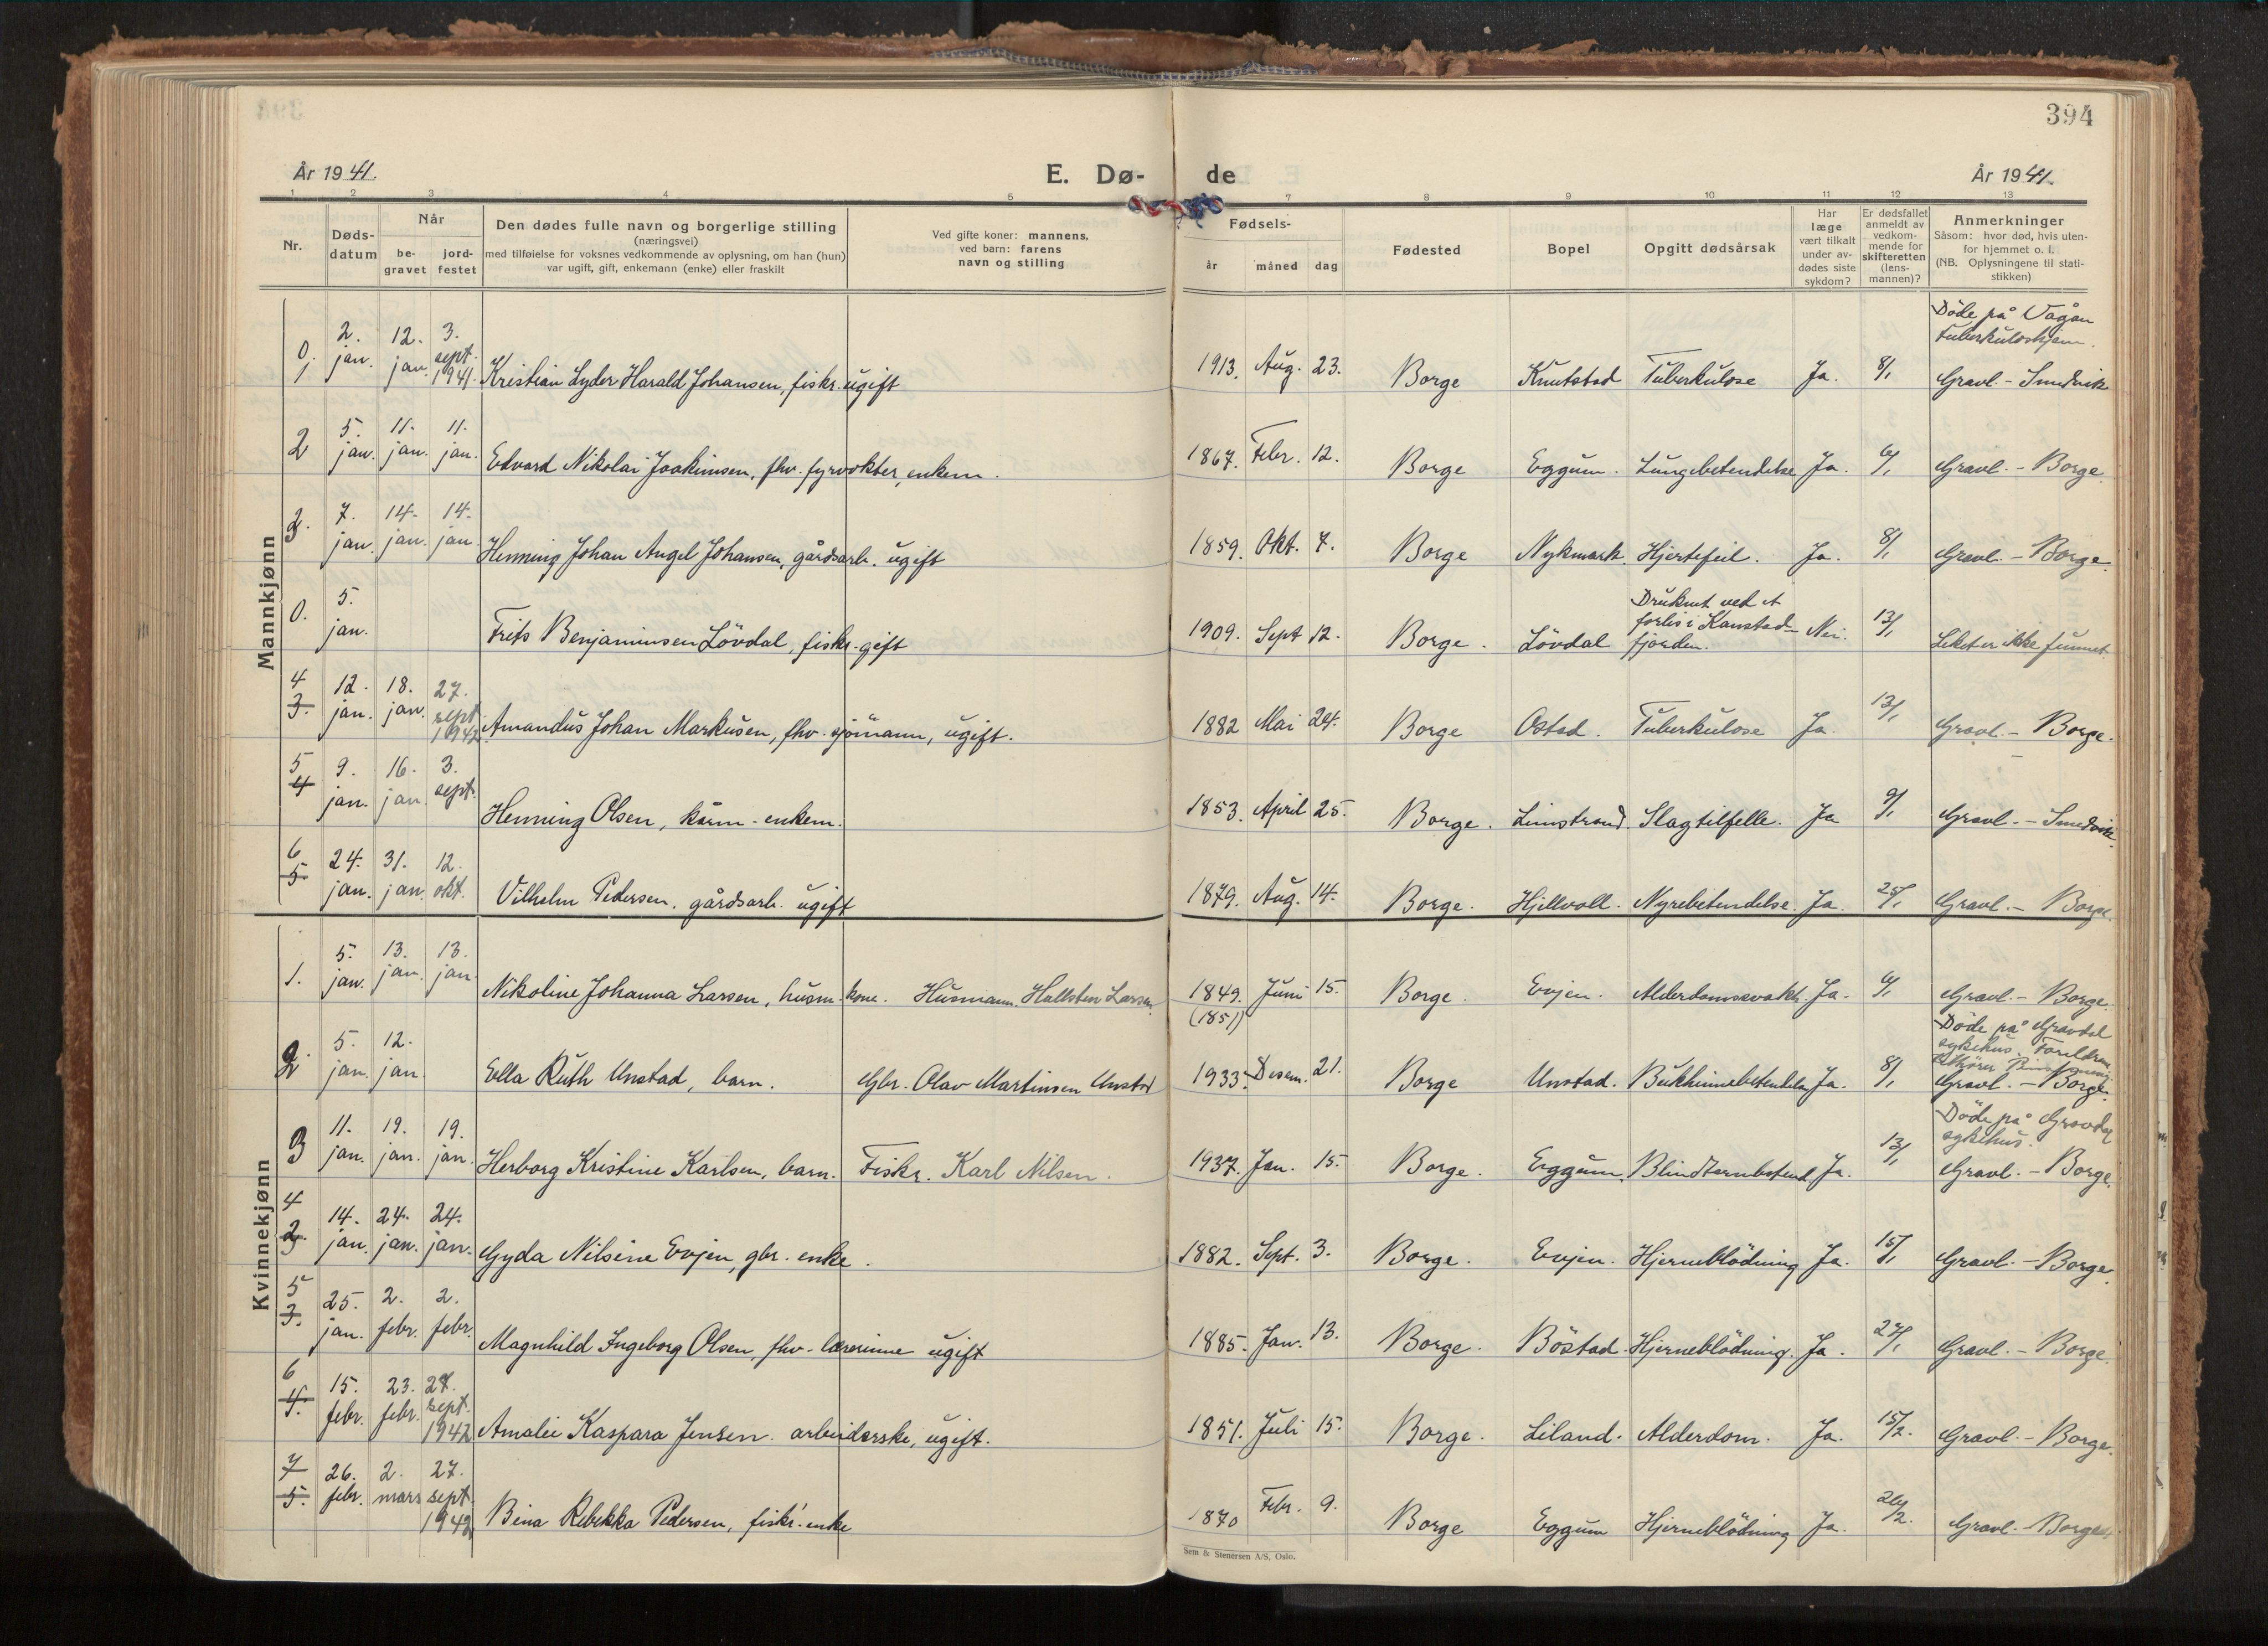 394
År 1941.
E. Dø-
de
År 1941.
1 2 3 4 5 7 8 9 10 11 12 13
Nr.
Døds-
datum
Når
be-
gravet
jord-
festet
Den dødes fulle navn og borgerlige stilling
(næringsvei)
med tilføielse for voksnes vedkommende av oplysning, om han (hun)
var ugift, gift, enkemann (enke) eller fraskilt
Ved gifte koner: mannens,
ved barn: farens
navn og stilling
Fødsels-
år måned dag
Fødested
Bopel
Opgitt dødsårsak
Har
læge
vært tilkalt
under av-
dødes siste
sykdom?
Er dødsfallet
anmeldt av
vedkom-
mende for
skifteretten
(lens-
mannen)?
Anmerkninger
Såsom: hvor død, hvis uten-
for hjemmet o. l.
(NB. Oplysningene til stati-
stikken)
Mannkjønn
0. 1 2. jan. 12. jan. 3. sept. 1941. Kristian Lyder Harald Johansen, fiskr. ugift 1913. Aug. 23. Borge Knutstad Tuberkulose Ja. 8/1 Døde på Vågan
Tuberkuloshjem.
Gravl. - Smedvik
2 5. jan. 11. jan. 11. jan. Edvard Nikolai Joakimsen, fhv. fyrvokter, enkem. 1867. Febr. 12. Borge Eggum. Lungebetendelse Ja. 6/1 Gravl. - Borge.
3. 7. jan. 14. jan. 14. jan. Henning Johan Angel Johansen, gårdsarb. ugift 1859. Okt. 7. Borge Nykmark. Hjertefeil. Ja. 8/1 Gravl. - Borge.
0. 5. jan. Frits Benjaminsen Lövdal, fiskr. gift 1909. Sept 12. Borge. Lövdal Druknet ved et
forlis i Kanstad-
fjorden. Nei. 13/1 Liket er ikke funnet.
4 3. 12. jan. 18. jan. 27. sept. 1942 Amandus Johan Markusen, fhv. sjömann, ugift. 1882 Mai 24. Borge Ostad. Tuberkulose Ja. 13/1 Gravl. - Borge.
5 4 9. jan. 16. jan. 3. sept. Henning Olsen, kårm. enkem. 1853. April 25. Borge. Limstrand. Slagtilfelle. Ja 9/1 Gravl. - Smedvik.
6 5 24. jan. 31. jan. 12. okt. Vilhelm Pedersen. gårdsarb. ugift 1879. Aug. 14. Borge. Hjellvoll. Nyrebetendelse. Ja. 25/1 Gravl. - Borge.
Kvinnekjønn
1. 5. jan. 13. jan. 13. jan. Nikoline Johanna Larsen, husm. kone. Husmann. Hallsten Larsen. 1849. (1851) Juni 15. Borge. Evjen. Alderdomssvakh. Ja. 6/1 Gravl. - Borge.
2. 5. jan. 12. jan. Ella Ruth Unstad, barn. Gbr. Olav Martinsen Unstad 1933. Desem. 21. Borge Unstad. Bukhinnebetendelse Ja. 8/1 Døde på Gravdal
sykehus. Foreldrene
tilhører
Gravl. - Borge.
3 11. jan. 19. jan. 19. jan. Herborg Kristine Karlsen, barn. Fiskr. Karl Nilsen. 1937. Jan. 15. Borge. Eggum. Blindtarmbetend. Ja. 13/1 Døde på Gravdal
sykehus.
Gravl. - Borge.
4 14. jan. 24. jan. 24. jan. Gyda Nilsine Evjen, gbr. enke. 1882. Sept. 3. Borge. Evjen. Hjerneblödning Ja. 15/1 Gravl. - Borge.
5 3. 25. jan. 2. febr. 2. febr. Magnhild Ingeborg Olsen, fhv. lærerinne ugift 1885. Jan. 13. Borge. Böstad. Hjerneblödning. Ja. 27/1 Gravl. - Borge.
6 4. 15. febr. 23. febr. 27. sept. 1942 Amalie Kaspara Jensen. arbeiderske, ugift. 1851. Juli 15. Borge. Liland. Alderdom. Ja. 15/2. Gravl. - Borge.
7 5. 26. febr. 2. mars 27. sept. 1942 Bina Rebekka Pedersen, fiskr. enke 1870 Febr. 9. Borge Eggum Hjerneblödning Ja. 26/2. Gravl. - Borge.
Sem & Stenersen A/S, Oslo.